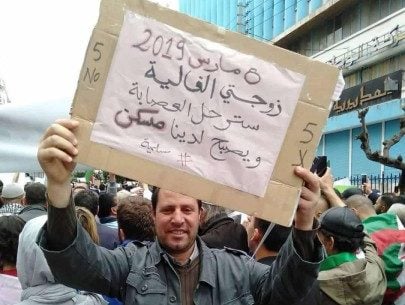 8 مارس 2019
زوجتي الغالية
سترحل العصابة
ويصبح لدينا مسكن
# سلمية
5
No
5